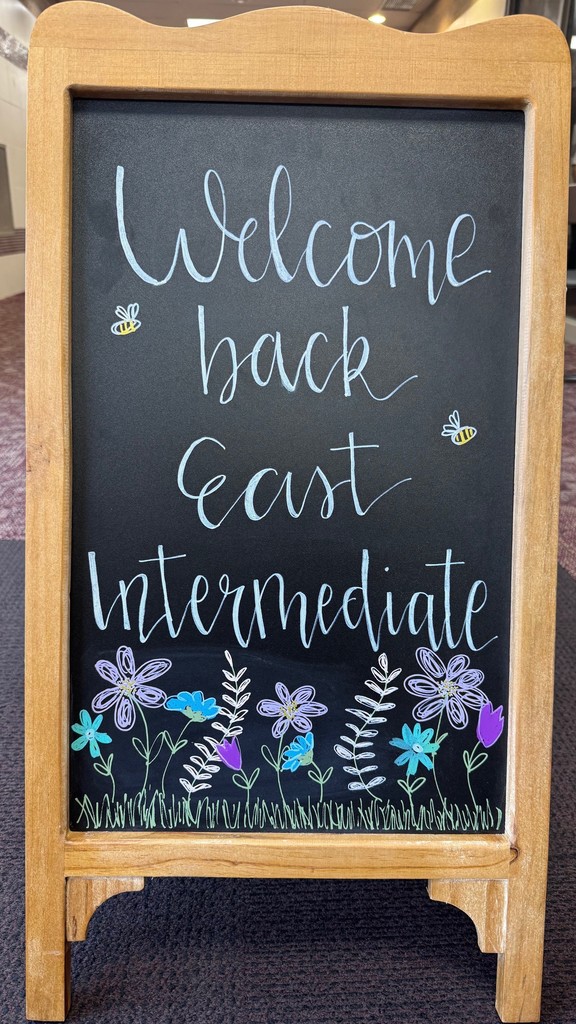 Welcome
back
East
Intermediate